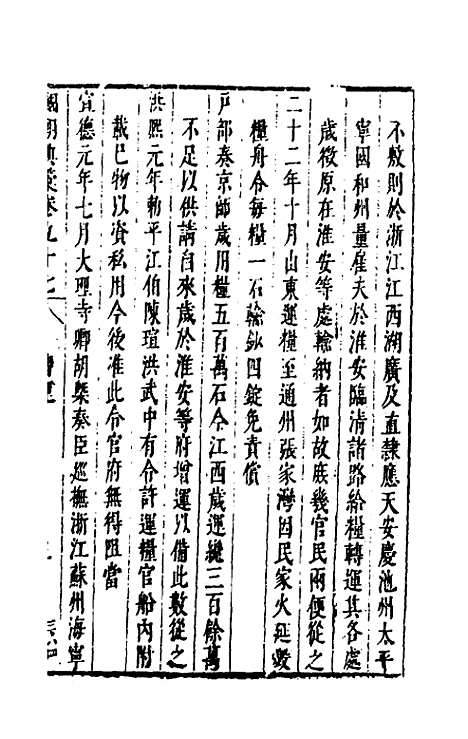 不敷則於浙江江西湖廣及直隸應天安慶池州太平
寧國和州量僱夫於淮安臨清諸路給糧轉運其各處
歲徵原在淮安等處輸納者如故庶幾官民兩便從之
二十二年十月山東運糧至通州張家灣因民家火延燬
糧舟令每糧一石輸鈔四錠免責償
戶部奏京師歲用糧五百萬石今江西歲運纔三百餘萬
不足以供請自來歲於淮安等府增運以備此數從之
洪熙元年勅平江伯陳瑄洪武中有令許運糧官船內附
載已物以資私用今後准此令官府無得阻當
宣德元年七月大理寺卿胡槩奏臣巡撫浙江蘇州海寧
國朝典彙卷九十七 漕運